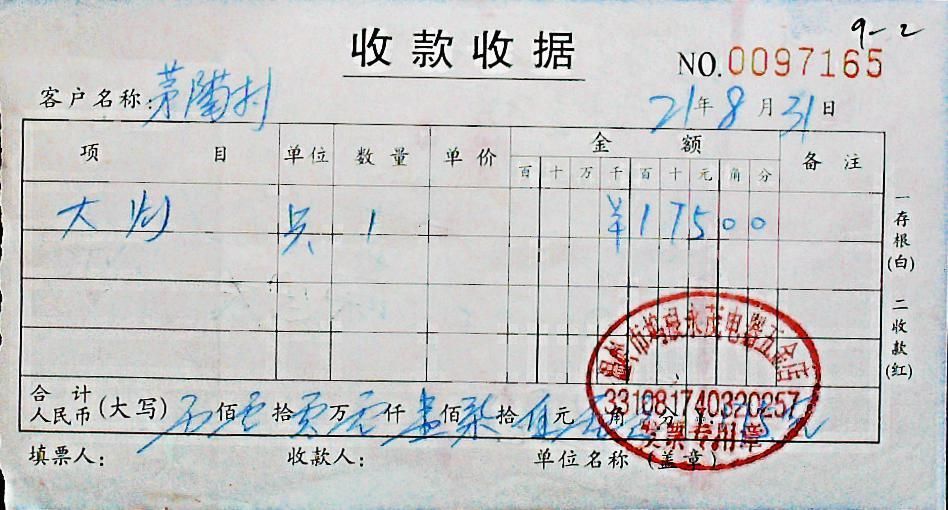 9-2
收款收据
NO.0097165
客户名称:茅陶村
21年8月31日
项目 单位 数量 单价 金额 备注
百 十 万 千 百 十 元 角 分
大灶 只 1 ¥17500
一存根(白) 二收款(红)
市坞根永茂电器五金店
331081740320257
发票专用章
合计
人民币(大写) 佰 拾 万 仟 壹佰柒拾伍元 角 分
填票人: 收款人: 单位名称(盖章)